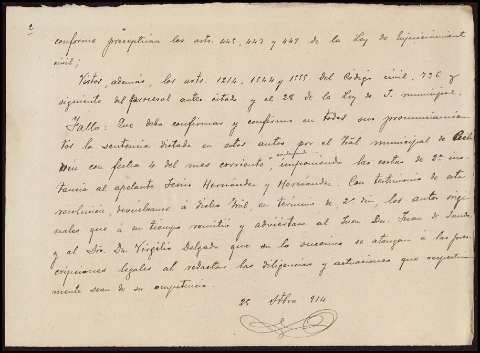 2
conforme preceptúan los arts. 445, 447 y 449 de la Ley de Enjuiciamiento
civil;
Vistos, además, los arts. 1214, 1544 y 1555 del Código civil, 736 y
siguiente del procesal antes citado y el 28 de la Ley de J. municipal.
Fallo: Que debo confirmar y confirmo en todos sus pronunciamien-
tos la sentencia dictada en estos autos por el Tral municipal de
con fecha 4 del mes corriente, imponiendo las costas de 2ª ins-
tancia al apelante Jesús Hernández y Hernández. Con testimonio de esta
resolución, devuélvanse á dicho Tral en término de 2º día, los autos origi-
nales que á su tiempo remitió y adviertase al Juez Dn. Juan de
y al Sro. Dn. Virgilio Delgado que en lo sucesivo se atengan á las pres-
cripciones legales al redactar las diligencias y actuaciones que respectiva-
mente sean de su competencia.
25 Stbre 914